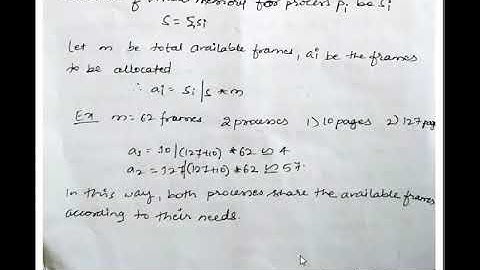 of virtual memory for process pi be si
S = Σsi
Let m be total available frames, ai be the frames
to be allocated
∴ ai = si/s * m
Ex m = 62 frames 2 processes 1) 10 pages 2) 127 pag
a1 = 10/(127+10) * 62 ≃ 4
a2 = 127/(127+10) * 62 ≃ 57
In this way, both processes share the available frames
according to their needs.